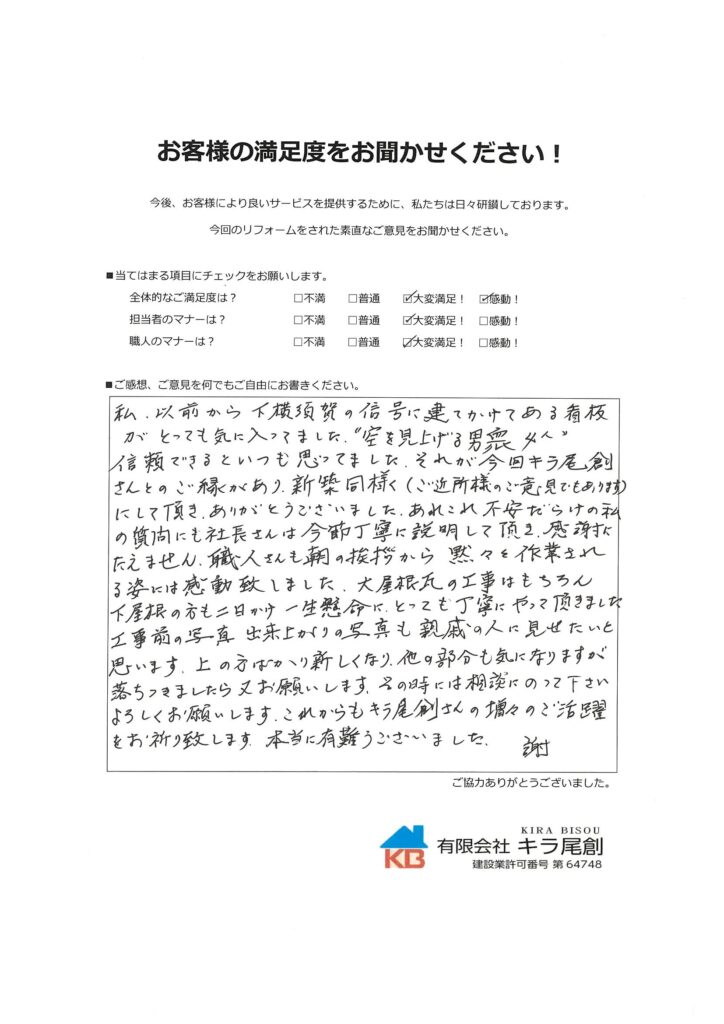 お客様の満足度をお聞かせください！
今後、お客様により良いサービスを提供するために、私たちは日々研鑽しております。
今回のリフォームをされた素直なご意見をお聞かせください。
■当てはまる項目にチェックをお願いします。
全体的なご満足度は？ □不満 □普通 ☑大変満足！ ☑感動！
担当者のマナーは？ □不満 □普通 ☑大変満足！ □感動！
職人のマナーは？ □不満 □普通 ☑大変満足！ □感動！
■ご感想、ご意見を何でもご自由にお書きください。
私、以前から下横須賀の信号に建てかけてある看板
がとっても気に入ってました。“空を見上げる男衆4人”
信頼できるといつも思ってました。それが今回キラ尾創
さんとのご縁があり、新築同様く(ご近所様のご意見でもあります)
にして頂き、ありがとうございました。あれこれ不安だらけの私
の質問にも社長さんは今節丁寧に説明して頂き、感謝に
たえません。職人さんも朝の挨拶から黙々と作業され
る姿には感動致しました。大屋根瓦の工事はもちろん
下屋根の方も二日かけ一生懸命に、とっても丁寧にやって頂きました
工事前の写真 出来上がりの写真も親戚の人に見せたいと
思います。上の方ばかり新しくなり、他の部分も気になりますが
落ちつきましたら又お願いします。その時には相談にのって下さい
よろしくお願いします。これからもキラ尾創さんの増々のご活躍
をお祈り致します。本当に有難うございました。 謝
ご協力ありがとうございました。
KIRA BISOU
KB 有限会社 キラ尾創
建設業許可番号 第64748